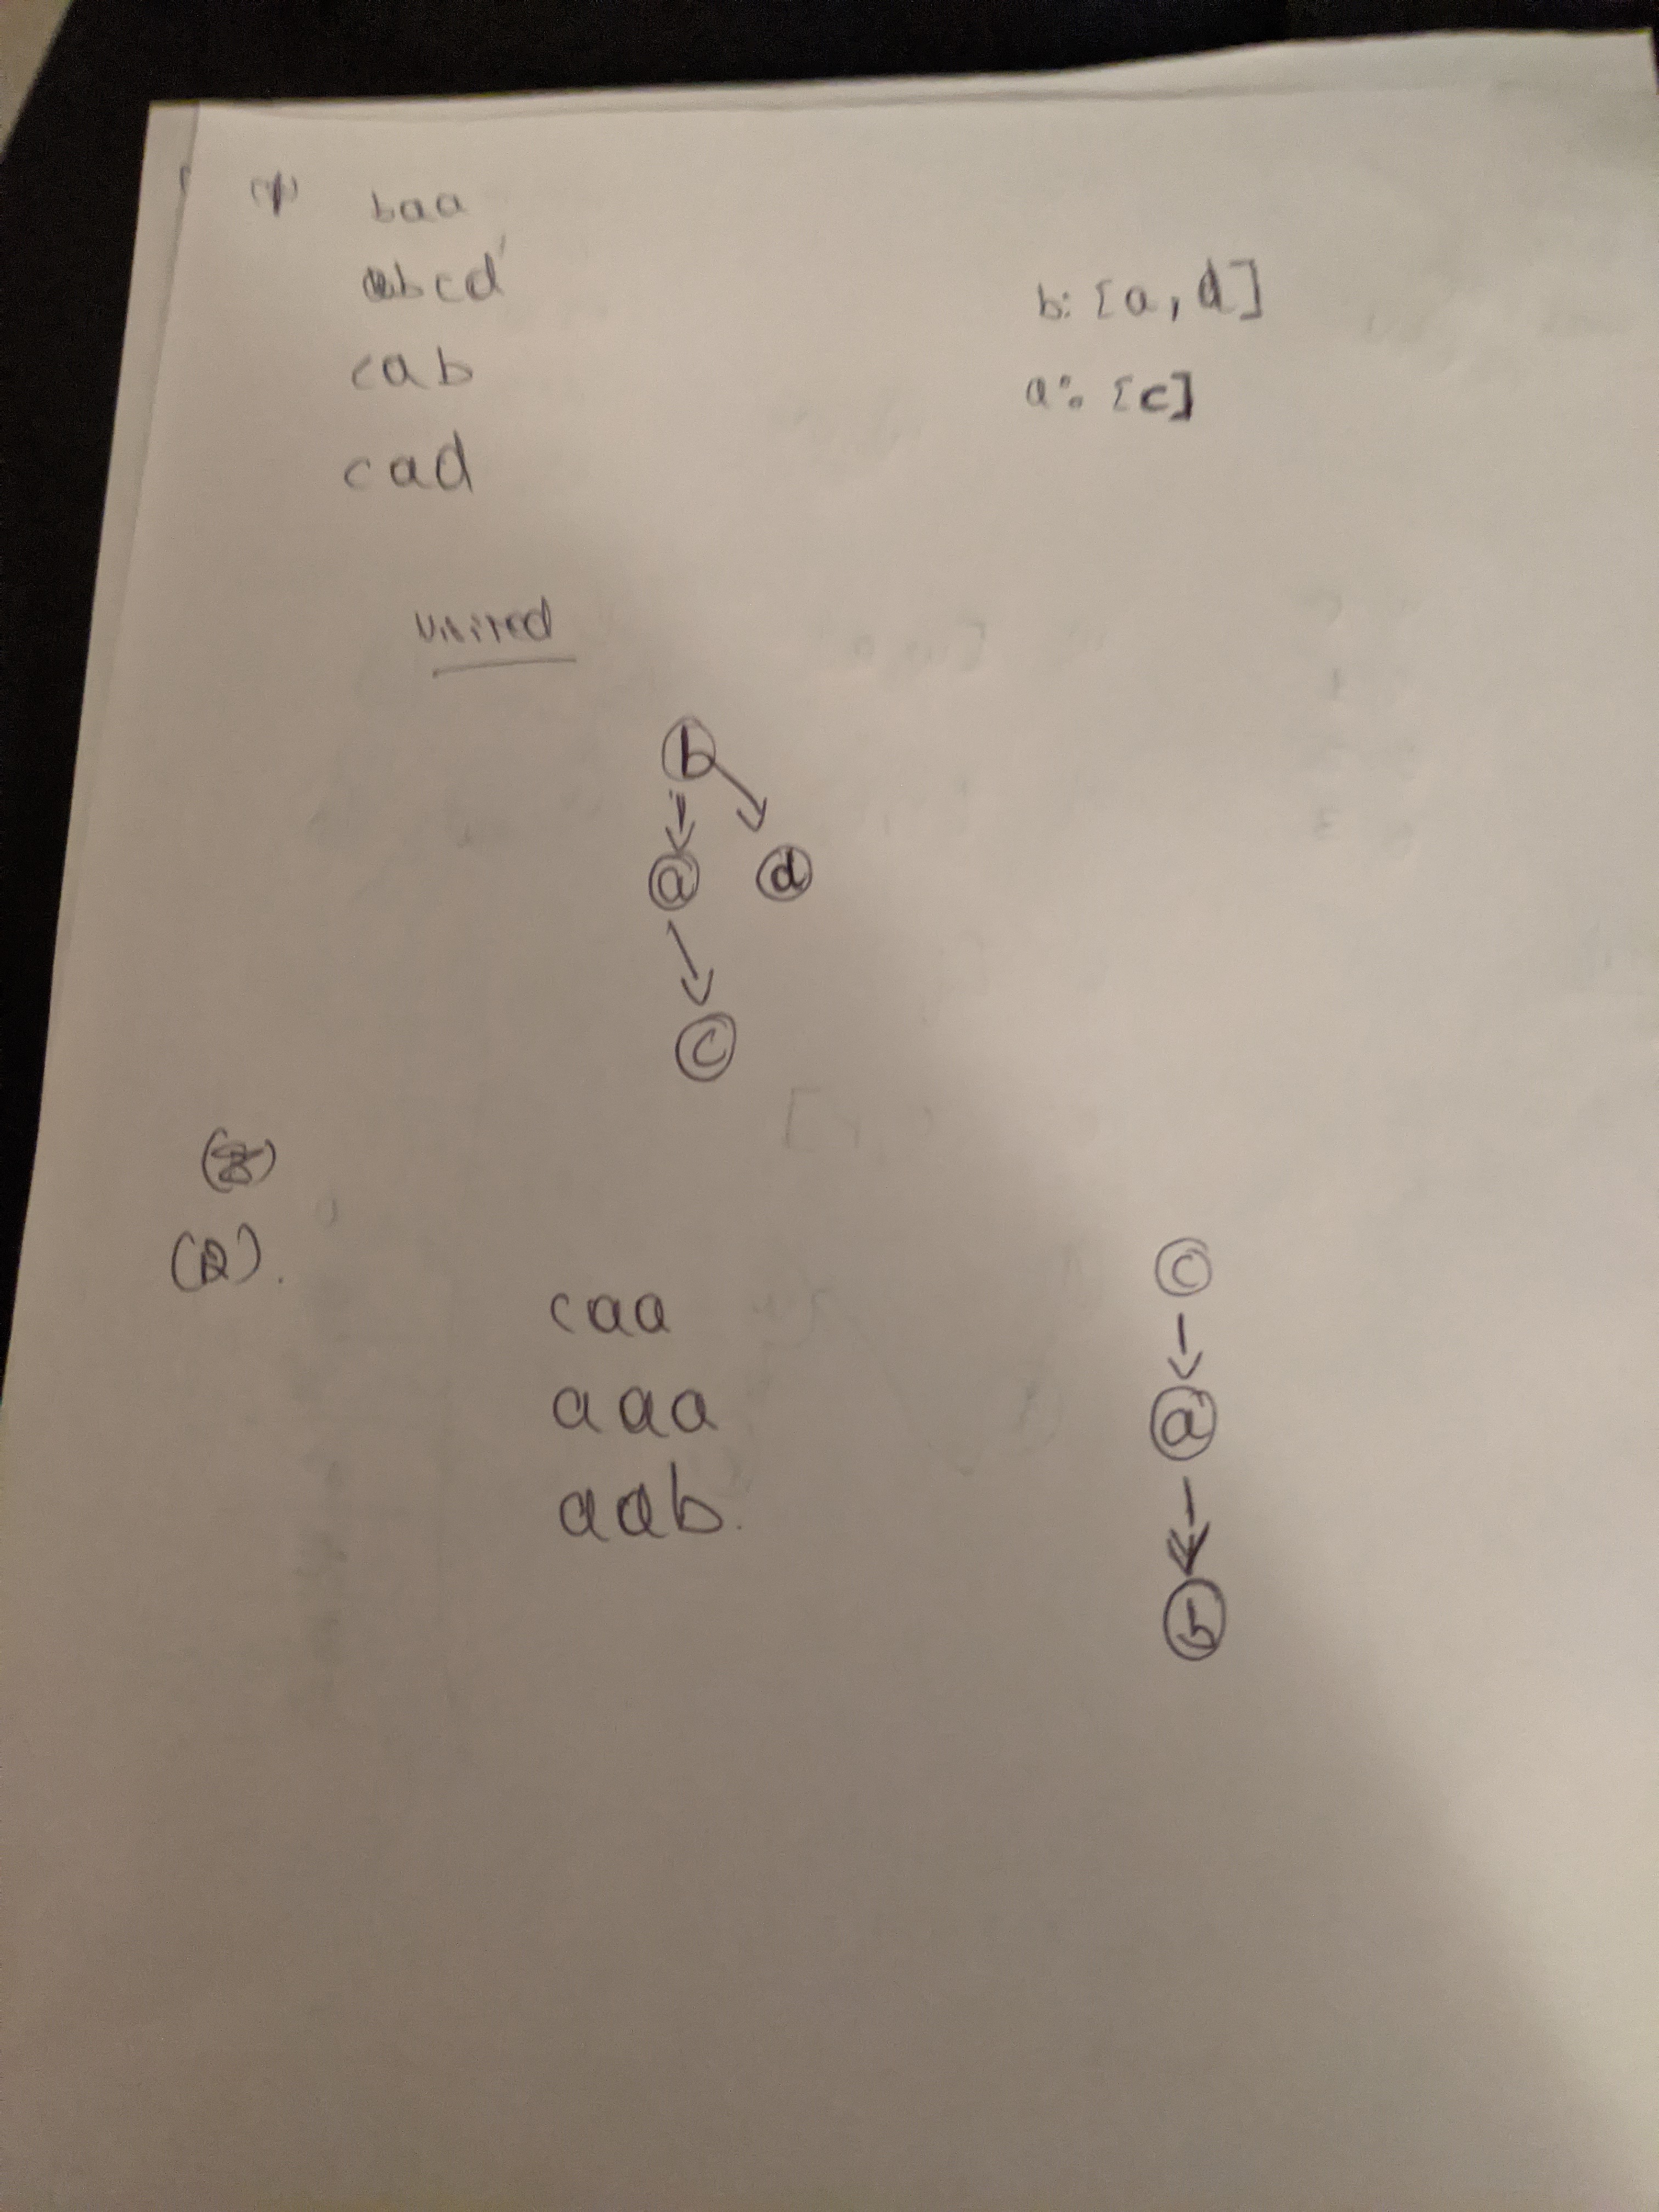 (1) baa
abcd
cab
cad
b: [a, d]
a: [c]
visited
b
a d
c
(2).
caa
aaa
aab.
c
a
b